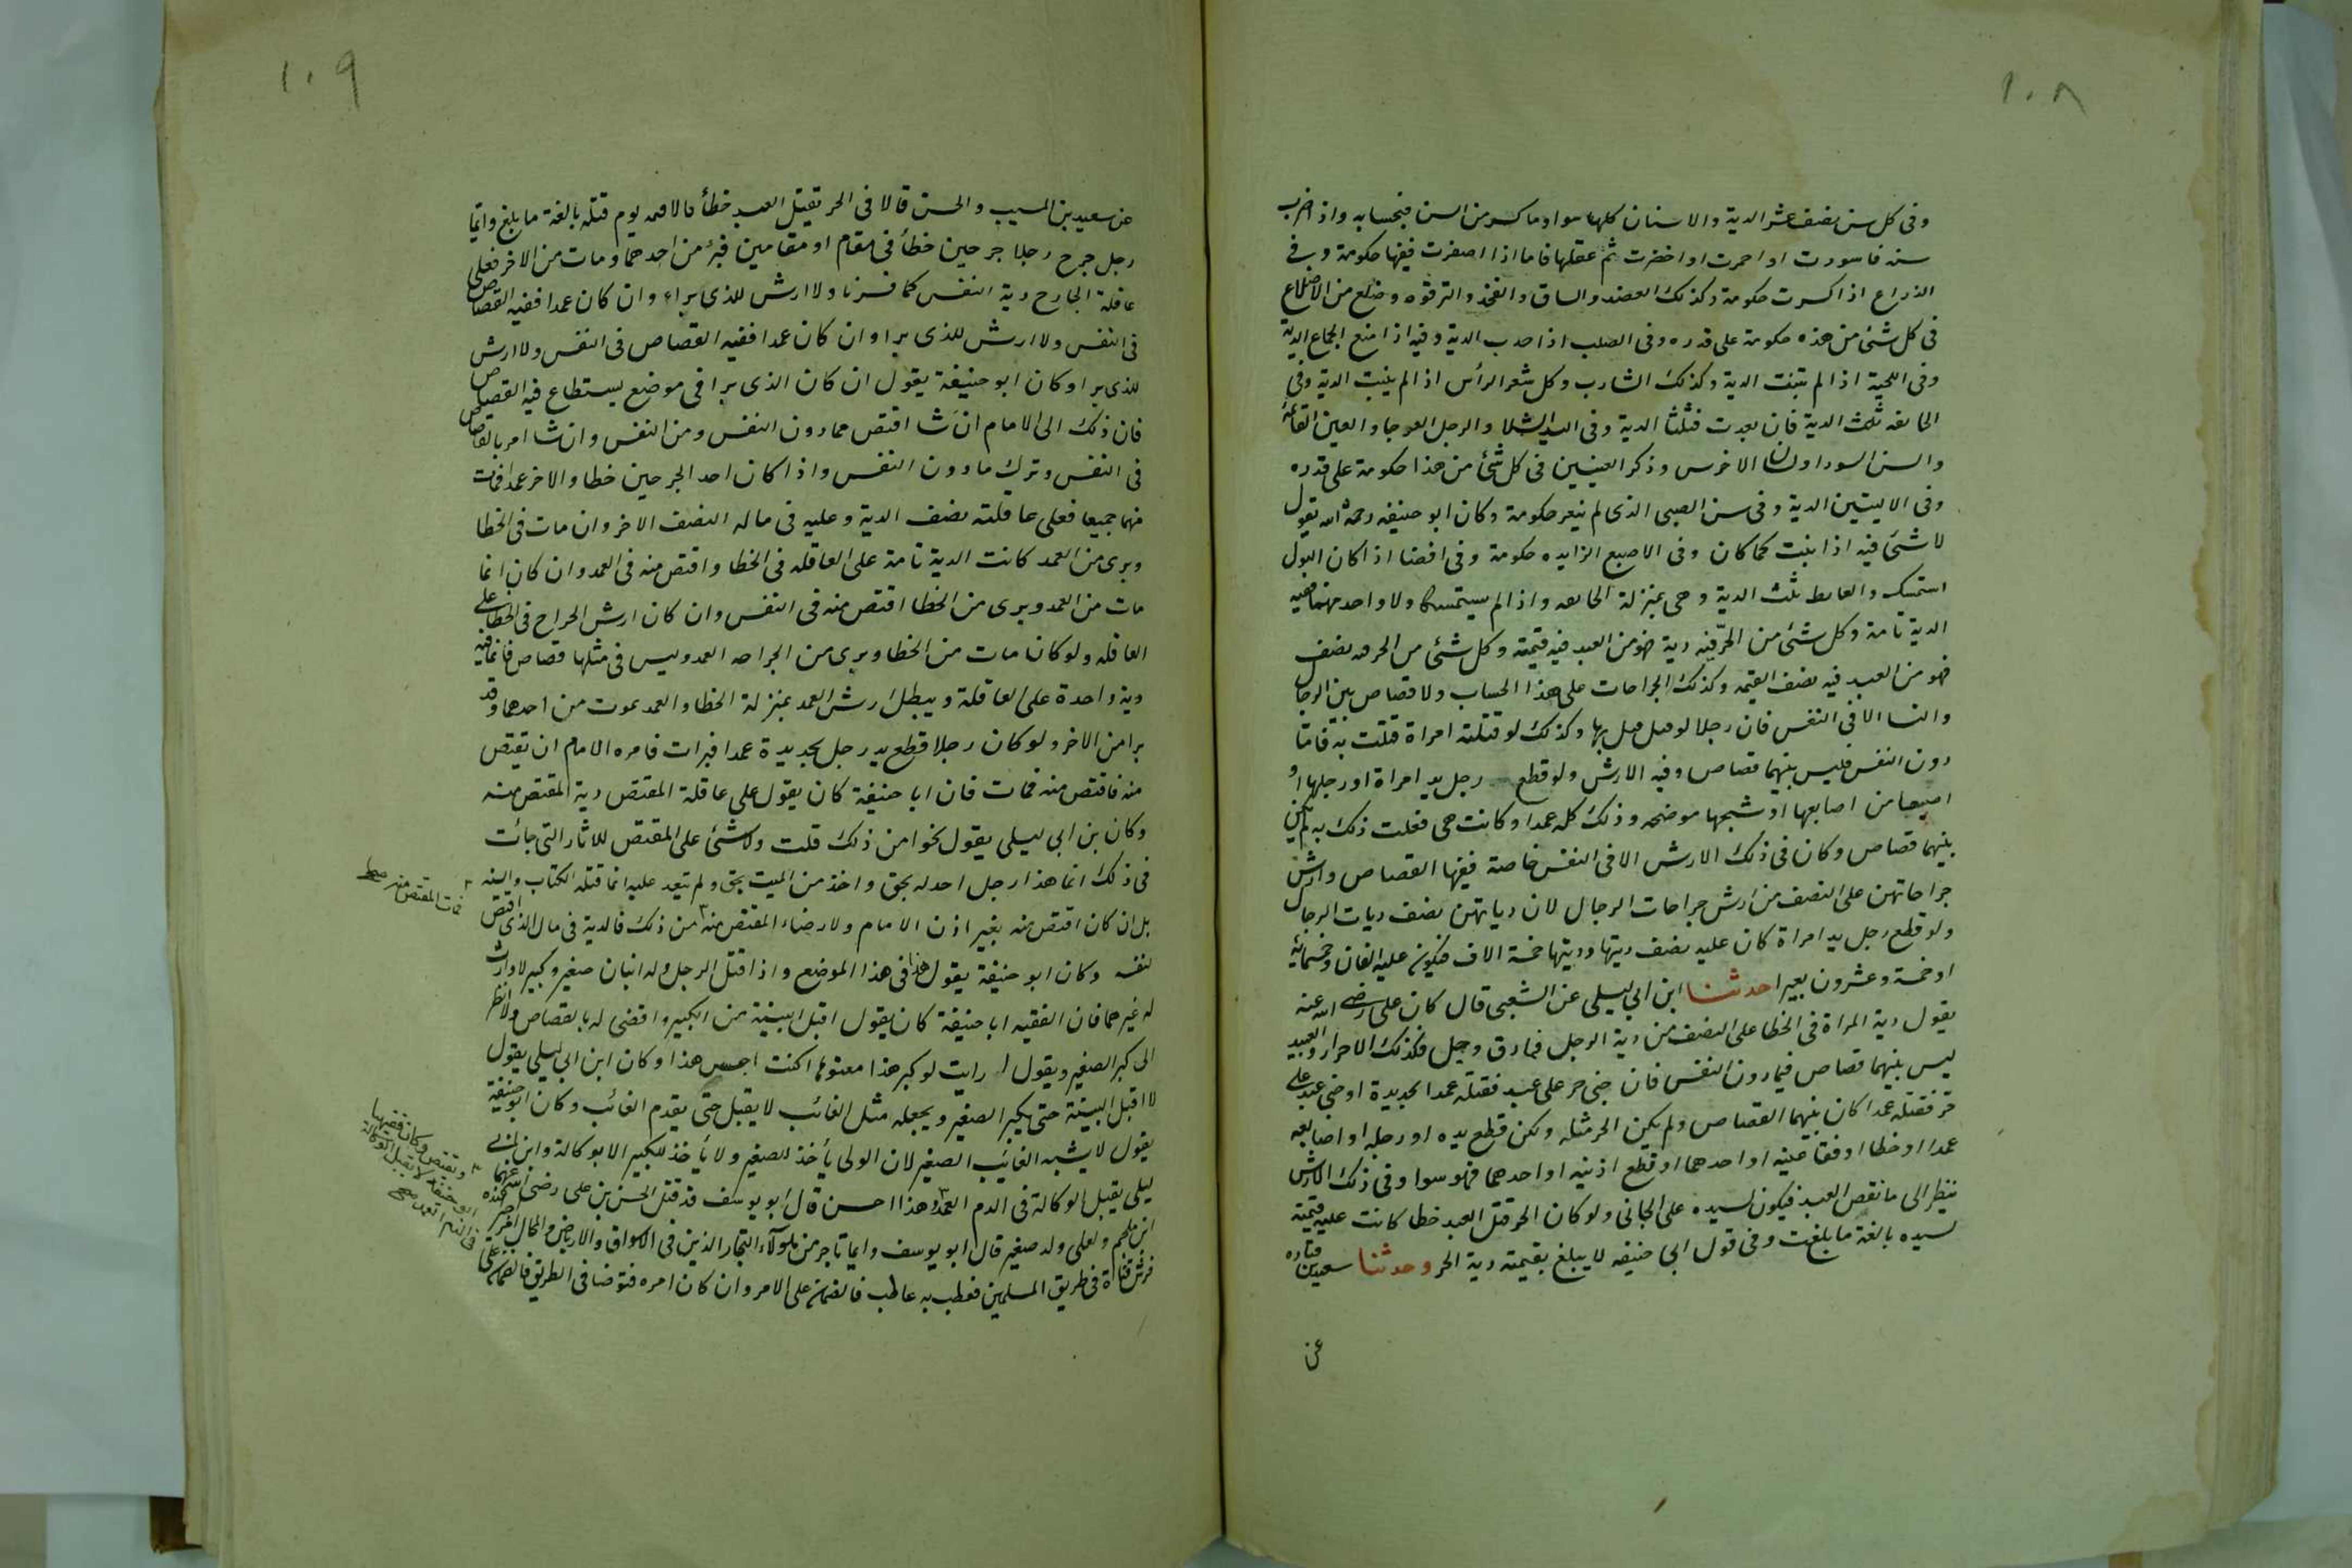 ١٠٨
وفى كل سن نصف عشر الدية والاسنان كلها سوا وما كسر من السن فبحسابه واذا ضرب
سنه فاسودت او احمرت او اخضرت تم عقلها فاما اذا اصفرت ففيها حكومة وفى
الذراع اذا كسرت حكومة وكذلك العضد والساق والفخذ والترقوه وضلع من الاضلاع
فى كل شئ من هذه حكومة على قدره وفى الصلب اذا حدب الدية وفيه اذا منع الجماع الدية
وفى اللحية اذا لم تنبت الدية وكذلك الشارب وكل شعر الرأس اذا لم ينبت الدية وفى
الجايفه ثلث الدية فان نفدت فثلثا الدية وفى اليد الشلا والرجل العوجا والعين القائمة
والسن السودا ولسان الاخرس وذكر العنين فى كل شئ من هذا حكومة على قدره
وفى الاليتين الدية وفى سن الصبى الذى لم يثغر حكومة وكان ابو حنيفه رحمه الله يقول
لا شئ فيه اذا نبت كما كان وفى الاصبع الزايده حكومة وفى افضا اذا كان البول
استمسك والغايط ثلث الدية وهى بمنزلة الجايفه واذا لم يستمسكا ولا واحد منهما ففيه
الدية تامة وكل شئ من الحر فيه دية فهو من العبد فيه قيمته وكل شئ من الحر فيه نصف
فهو من العبد فيه نصف القيمه وكذلك الجراحات على هذا الحساب ولا قصاص بين الرجال
والنسا الا فى النفس فان رجلا لو قتل قتل بها وكذلك لو قتلته امراة قتلت به فاما
دون النفس فليس بينهما قصاص وفيه الارش ولو قطع رجل يد امراة او رجلها او
اصبعا من اصابعها او شجها موضحه وذلك كله عمدا وكانت هى فعلت ذلك به لم يكن
بينهما قصاص وكان فى ذلك الارش الا فى النفس خاصة ففيها القصاص وارش
جراحاتهن على النصف من ارش جراحات الرجال لان دياتهن نصف ديات الرجال
ولو قطع رجل يد امراة كان عليه نصف ديتها وديتها خمسة الاف فيكون عليه الفان وخمسمائة
او خمسة وعشرون بعيرا حدثنا ابن ابى ليلى عن الشعبى قال كان على رضى الله عنه
يقول دية المراة فى الخطا على النصف من دية الرجل فيما دق وجل وكذلك الاحرار والعبيد
ليس بينهما قصاص فيما دون النفس فان جنى حر على عبد فقتله عمدا بحديدة او جنى عبد على
حر فقتله عمدا كان بينهما القصاص ولم يكن الحر مثله ولكن قطع يده او رجله او اصابعه
عمدا او خطا او فقا عينيه او احدهما او قطع اذنيه او احدهما فهو سوا وفى ذلك الارش
ينظر الى ما نقص العبد فيكون لسيده على الجانى ولو كان الحر قتل العبد خطا كانت عليه قيمته
لسيده بالغة ما بلغت وفى قول ابى حنيفه لا يبلغ بقيمته دية الحر وحدثنا سعيد عن قتاده
عن
١٠٩
عن سعيد بن المسيب والحسن قالا فى الحر يقتل العبد خطأ قالا قيمته يوم قتله بالغة ما بلغ وايما
رجل جرح رجلا جرحين خطأ فى مقام او مقامين فبرئ من احدهما ومات من الاخر فعلى
عاقلة الجارح دية النفس كما فسرنا ولا ارش للذى براء وان كان عمدا ففيه القصاص
فى النفس ولا ارش للذى برا وان كان عمدا ففيه القصاص فى النفس ولا ارش
للذى برا وكان ابو حنيفة يقول ان كان الذى برا فى موضع يستطاع فيه القصاص
فان ذلك الى الامام ان شا اقتص مما دون النفس ومن النفس وان شا امر بالقصاص
فى النفس وترك ما دون النفس واذا كان احد الجرحين خطا والاخر عمدا فمات
منهما جميعا فعلى عاقلته نصف الدية وعليه فى ماله النصف الاخر وان مات فى الخطا
وبرى من العمد كانت الدية تامة على العاقله فى الخطا واقتص منه فى العمد وان كان انما
مات من العمد وبرى من الخطا اقتص منه فى النفس وان كان ارش الجراح فى الخطا على
العاقله ولو كان مات من الخطا وبرى من الجراحه العمد وليس فى مثلها قصاص فانما فيه
دية واحدة على العاقلة ويبطل ارش العمد بمنزلة الخطا والعمد يموت من احدهما وقد
برا من الاخر ولو كان رجلا قطع يد رجل بحديدة عمدا فبرات فامره الامام ان يقتص
منه فاقتص منه فمات فان ابا حنيفة كان يقول على عاقلة المقتص دية المقتص منه
وكان بن ابى ليلى يقول نحوا من ذلك قلت ولا شئ على المقتص للاثار التى جائت
فى ذلك انما هذا رجل اخذ له بحق واخذ من الميت بحق ولم يتعد عليه انما قتله الكتاب والسنه
بل ان كان اقتص منه بغير اذن الامام ولا رضاء المقتص منه من ذلك فالدية فى مال الذى اقتص
لنفسه وكان ابو حنيفة يقول هذا فى هذا الموضع واذا قتل الرجل وله ابنان صغير وكبير لا وارث
له غيرهما فان الفقيه ابا حنيفة كان يقول اقبل البينة من الكبير واقضى له بالقصاص ولا انظر
الى كبر الصغير ويقول ارايت لو كبر هذا معتوها اكنت احبس هذا وكان ابن ابى ليلى يقول
لا اقبل البينة حتى يكبر الصغير ويجعله مثل الغائب لا يقبل حتى يقدم الغائب وكان ابو حنيفة
يقول لا يشبه الغائب الصغير لان الولى يأخذ للصغير ولا يأخذ للكبير الا بوكالة وابن ابى
ليلى يقبل الوكالة فى الدم العمد وهذا احسن قال ابو يوسف قد قتل الحسن بن على رضى الله عنهما
ابن ملجم ولعلى ولد صغير قال ابو يوسف وايما تاجر من هؤلاء التجار الذين فى الاسواق والارباض والمحال
فرش قناة فى طريق المسلمين فعطب به عاطب فالضمان على الامر وان كان امره فتوضا فى الطريق فالضمان على
فمات المقتص منه صح
ويقتص وكان فقيهنا
ابو حنيفه لا يقبل الوكالة
فى الدم العمد صح